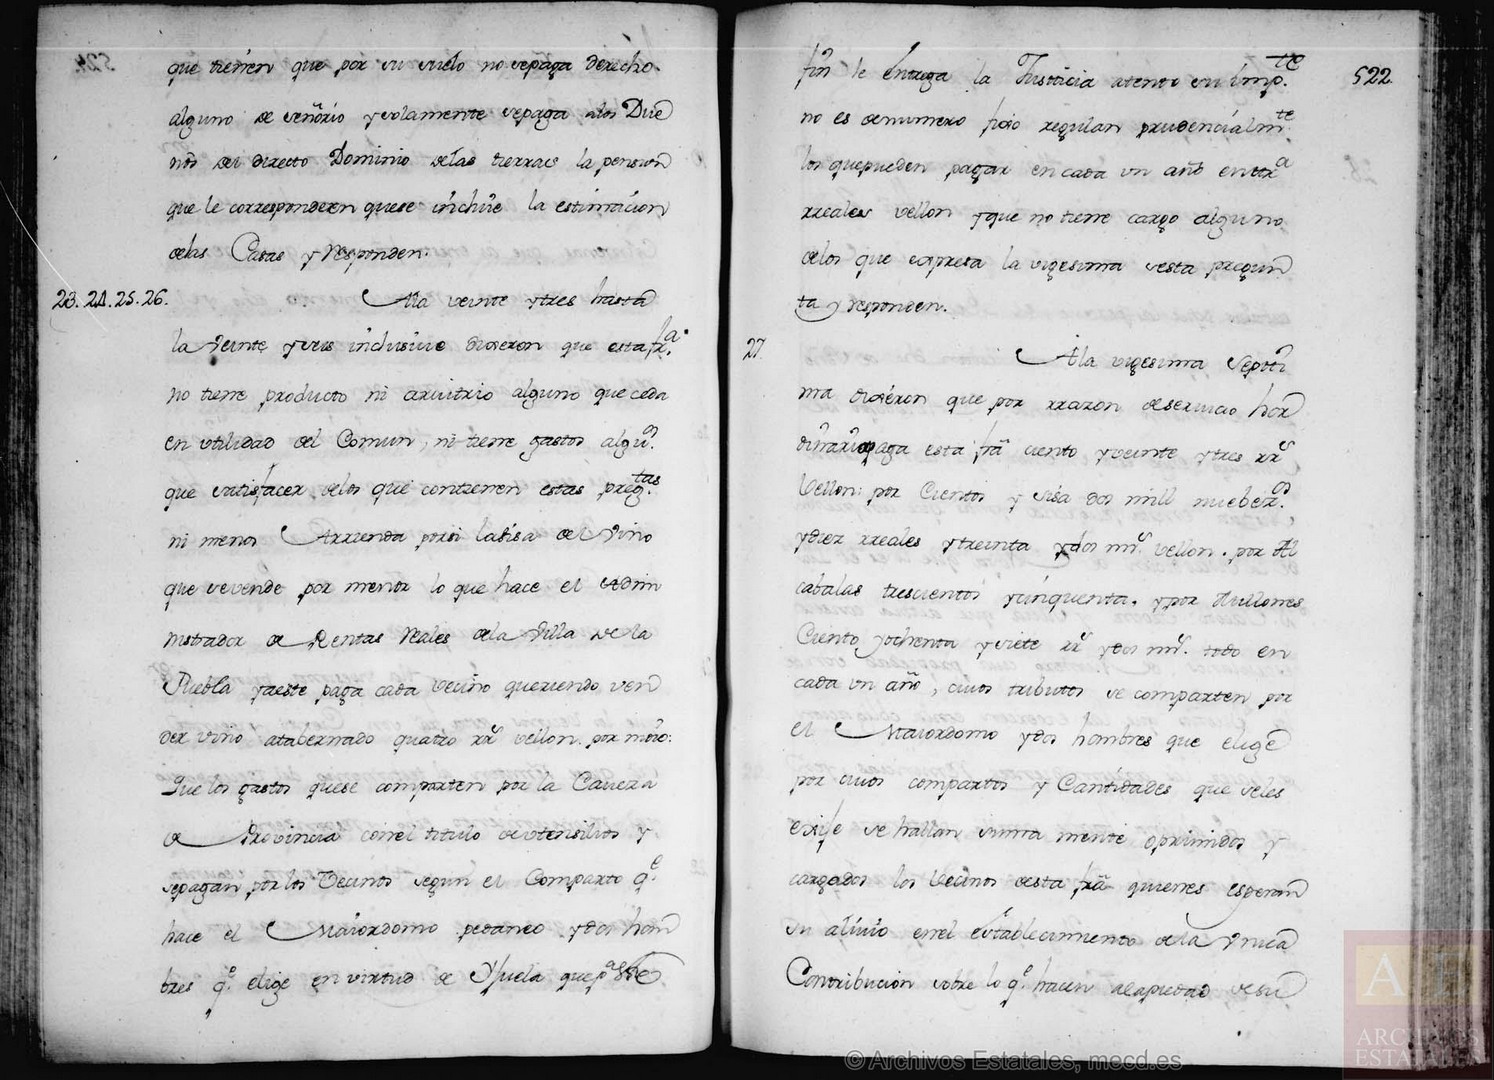 que tienen que por su suelo no se paga derecho
alguno de señorio y solamente se paga alos Due
ños del directo Dominio delas tierras la pension
que le corresponden que se inchuie la estimacion
delas Casas y responden.
23. 24. 25. 26. Ala veinte y tres hasta
la veinte y seis inclusivie dixeron que esta fra.
no tiene producto ni arvitrio alguno que ceda
en utilidad del Comun, ni tiene gastos algus.
que satisfacer delos que contienen estas pregtas.
ni menos Arrienda por si la Sisa del Vino
que se vende por menor lo que hace el Admin
nistrador de Rentas Reales dela Villa de la
Puebla y a este paga cada vecino queriendo ven
der vino atabernado quatro rrs vellon por moio:
Que los gastos que se comparten por la Caveza
de Provincia con el titulo de utensilios y
se pagan por los Vecinos segun el Comparto qe.
hace el Maiordomo pedaneo y dos hom
bres qe. elige en virtud de Yjuela que pa este
522
fin le entrega la Justicia atento su Impte.
no es de numero fixo regulan prudencialmte.
los que pueden pagar en cada un año en
rreales vellon y que no tiene cargo alguno
delos que expresa la vigesima sesta pregun
ta y responden.
27. Ala vigesima septi
ma dixeron que por rrazon de servicio hor
dinario paga esta fra ciento y veinte y tres rrs
Vellon: por Cientos y sisa dos mill nuebezs.
y diez rreales y treinta y dos mrs. vellon. por Al
cabalas trescientos y cinquenta. y por Millones
Ciento y ochenta y siete rrs y dos mrs. todo en
cada un año, cuios tributos se comparten por
el Maiordomo y dos hombres que elige
por cuios compartos y Cantidades que seles
exije se hallan suma mente oprimidos y
cargados los Vecinos desta fra quienes esperan
su alivio en el establecimiento dela Vnica
Contribucion sobre lo qe. hacen ala piedad de su
© Archivos Estatales, mecd.es
AE
ARCHIVOS
ESTATALES